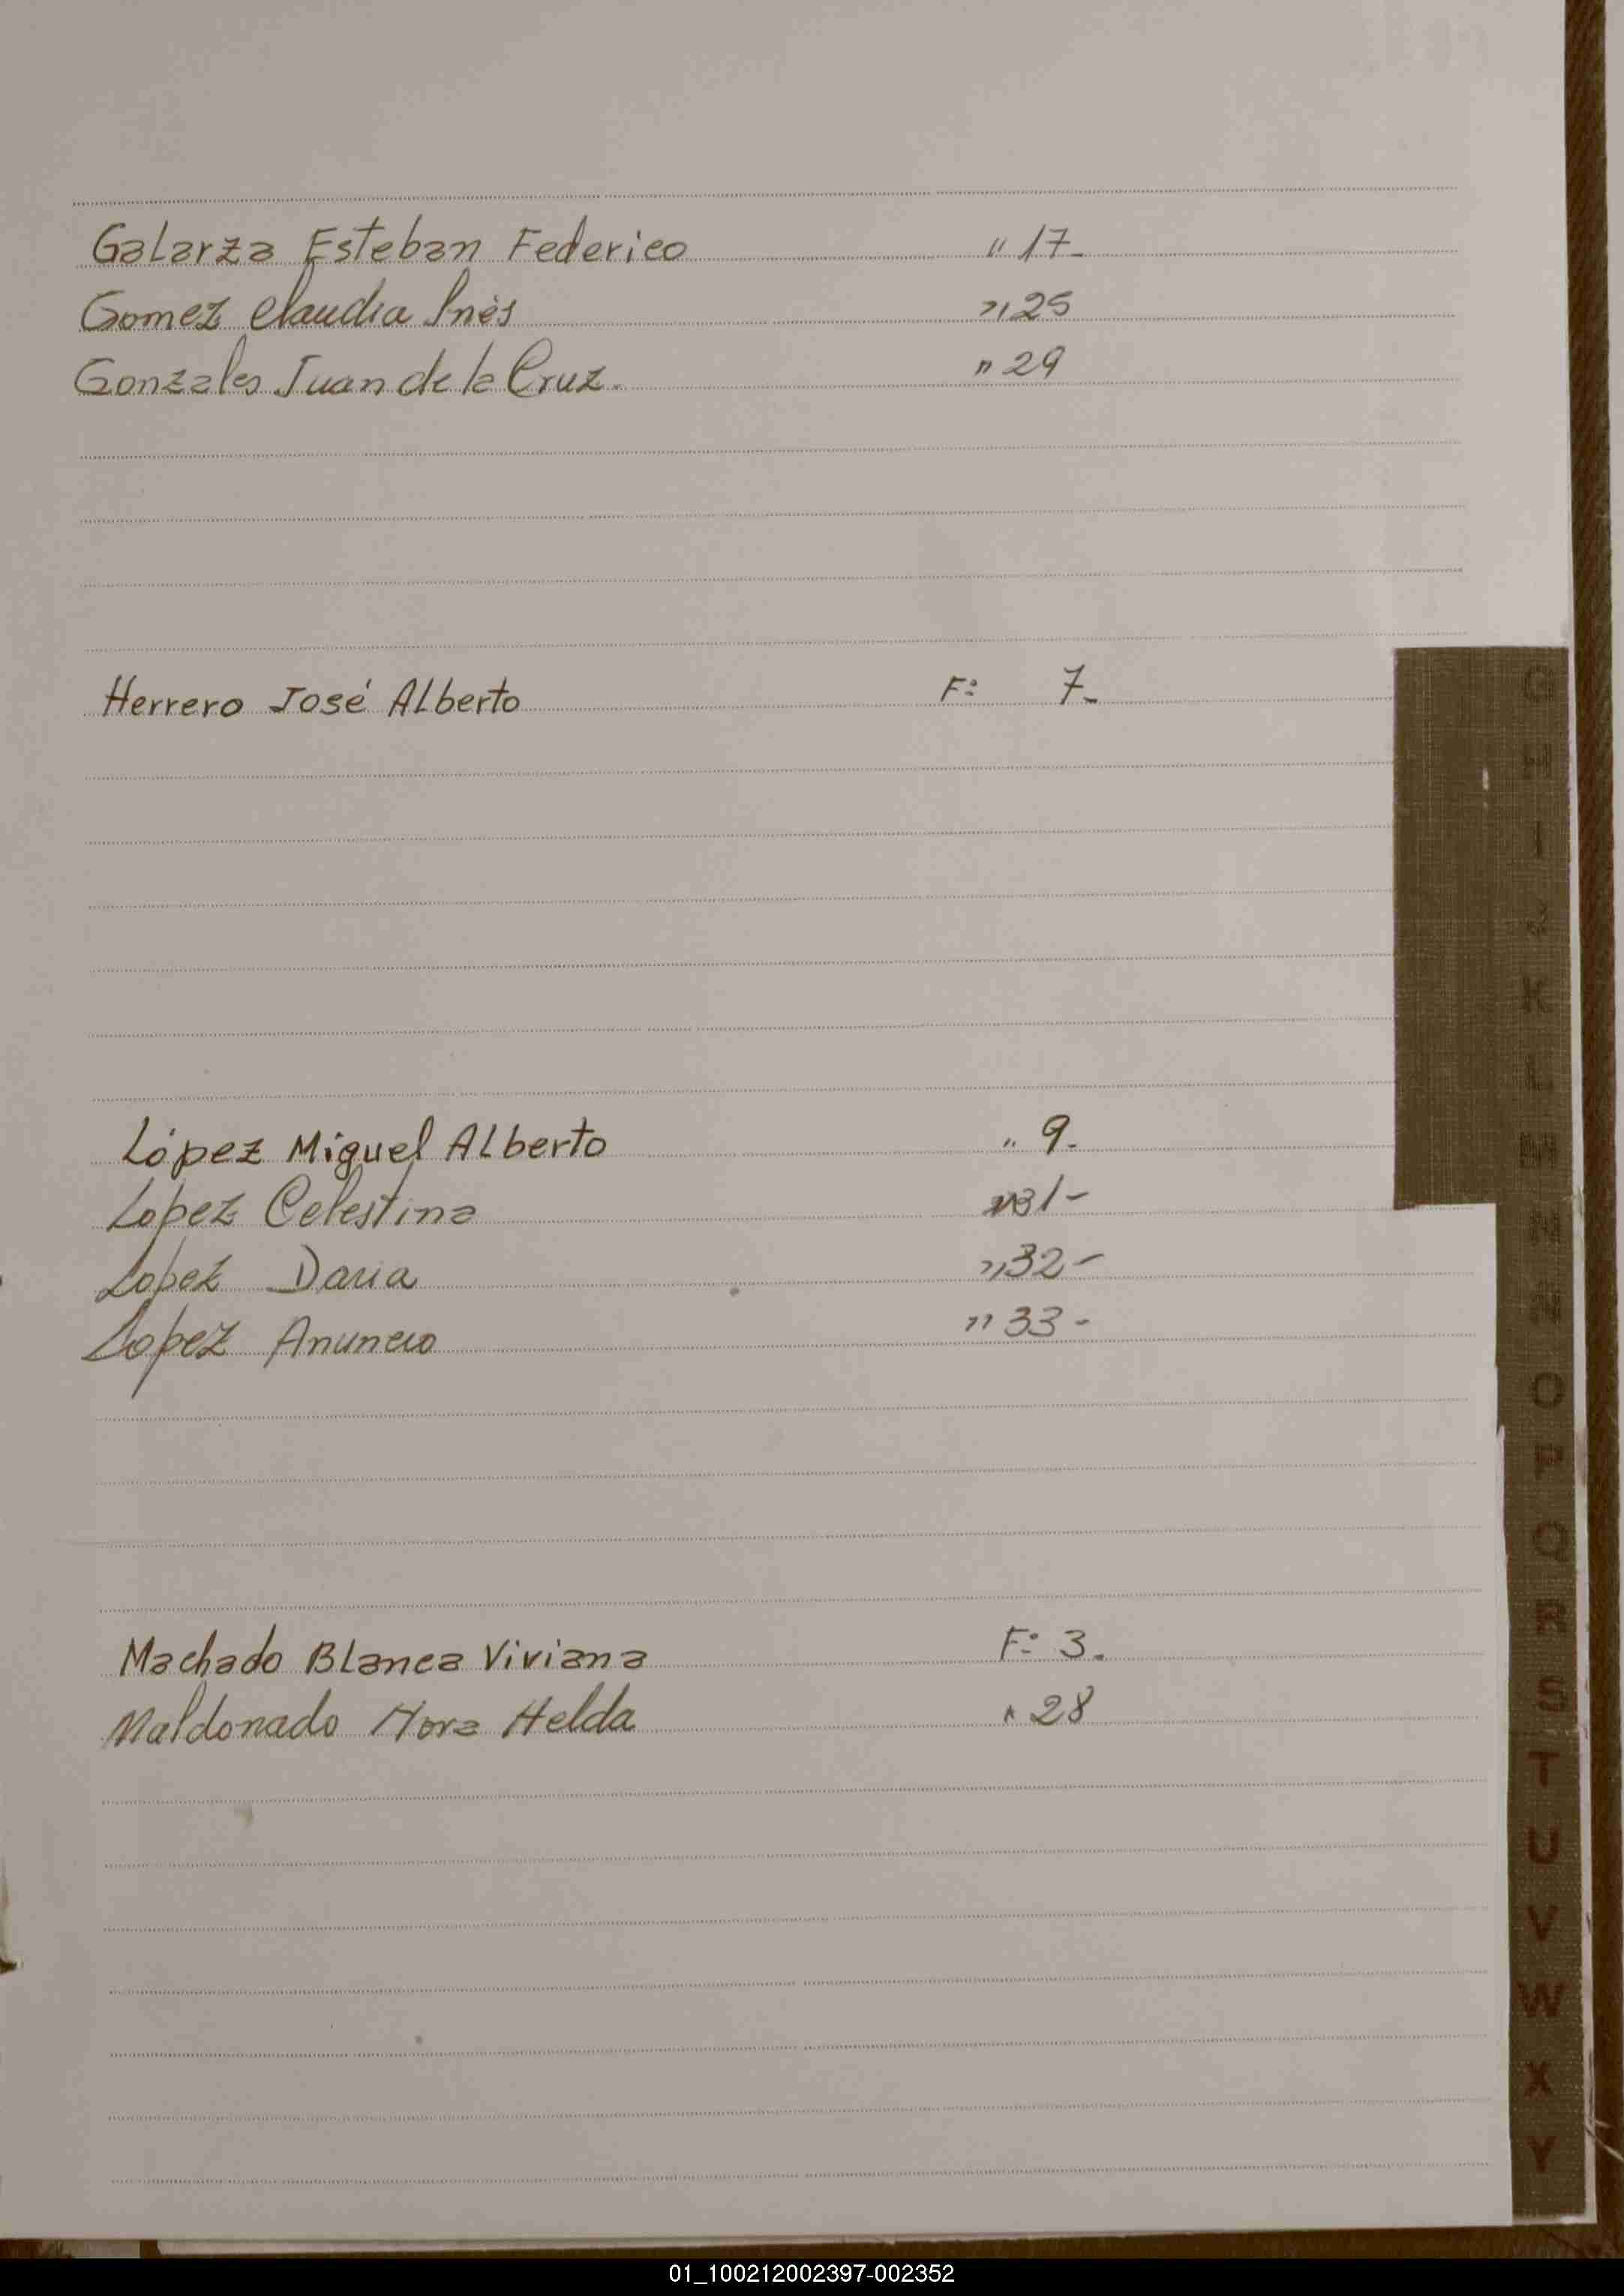 Galarza Esteban Federico " 17-
Gomez Claudia Inès " 25
Gonzales Juan de la Cruz. " 29
Herrero José Alberto F: 7-
López Miguel Alberto " 9-
Lopez Celestina " 31-
Lopez Daria " 32-
Lopez Anuncio " 33-
Machado Blanca Viviana F: 3.
Maldonado Helda " 28
G
H
I
J
K
L
M
N
N
O
P
Q
R
S
T
U
V
W
X
Y
01_100212002397-002352